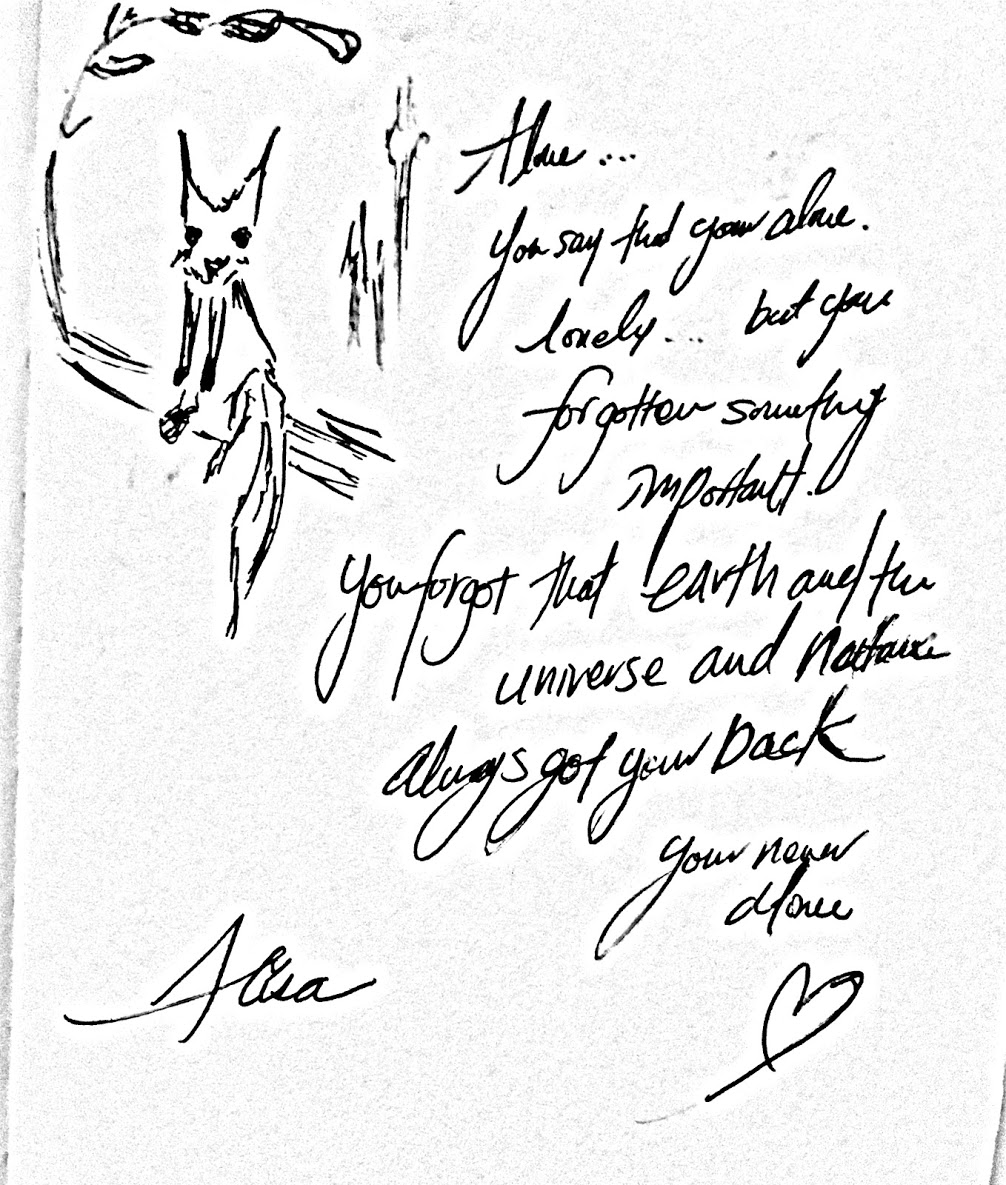 Alone ...
you say that your alone.
lonely... but you
forgotten something
important.
you forgot that earth and the
universe and nature
always got your back
your never
alone
Alisa